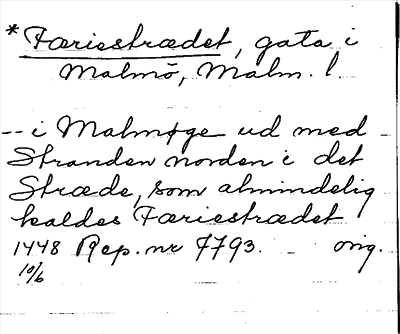 *Færiestrædet, gata i
Malmö, Malm. l.
-- i Malmøge ud med
Stranden norden i det
Stræde, som almindelig
kaldes Færiestrædet
1448 Rep. nr 7793. orig.
10/6